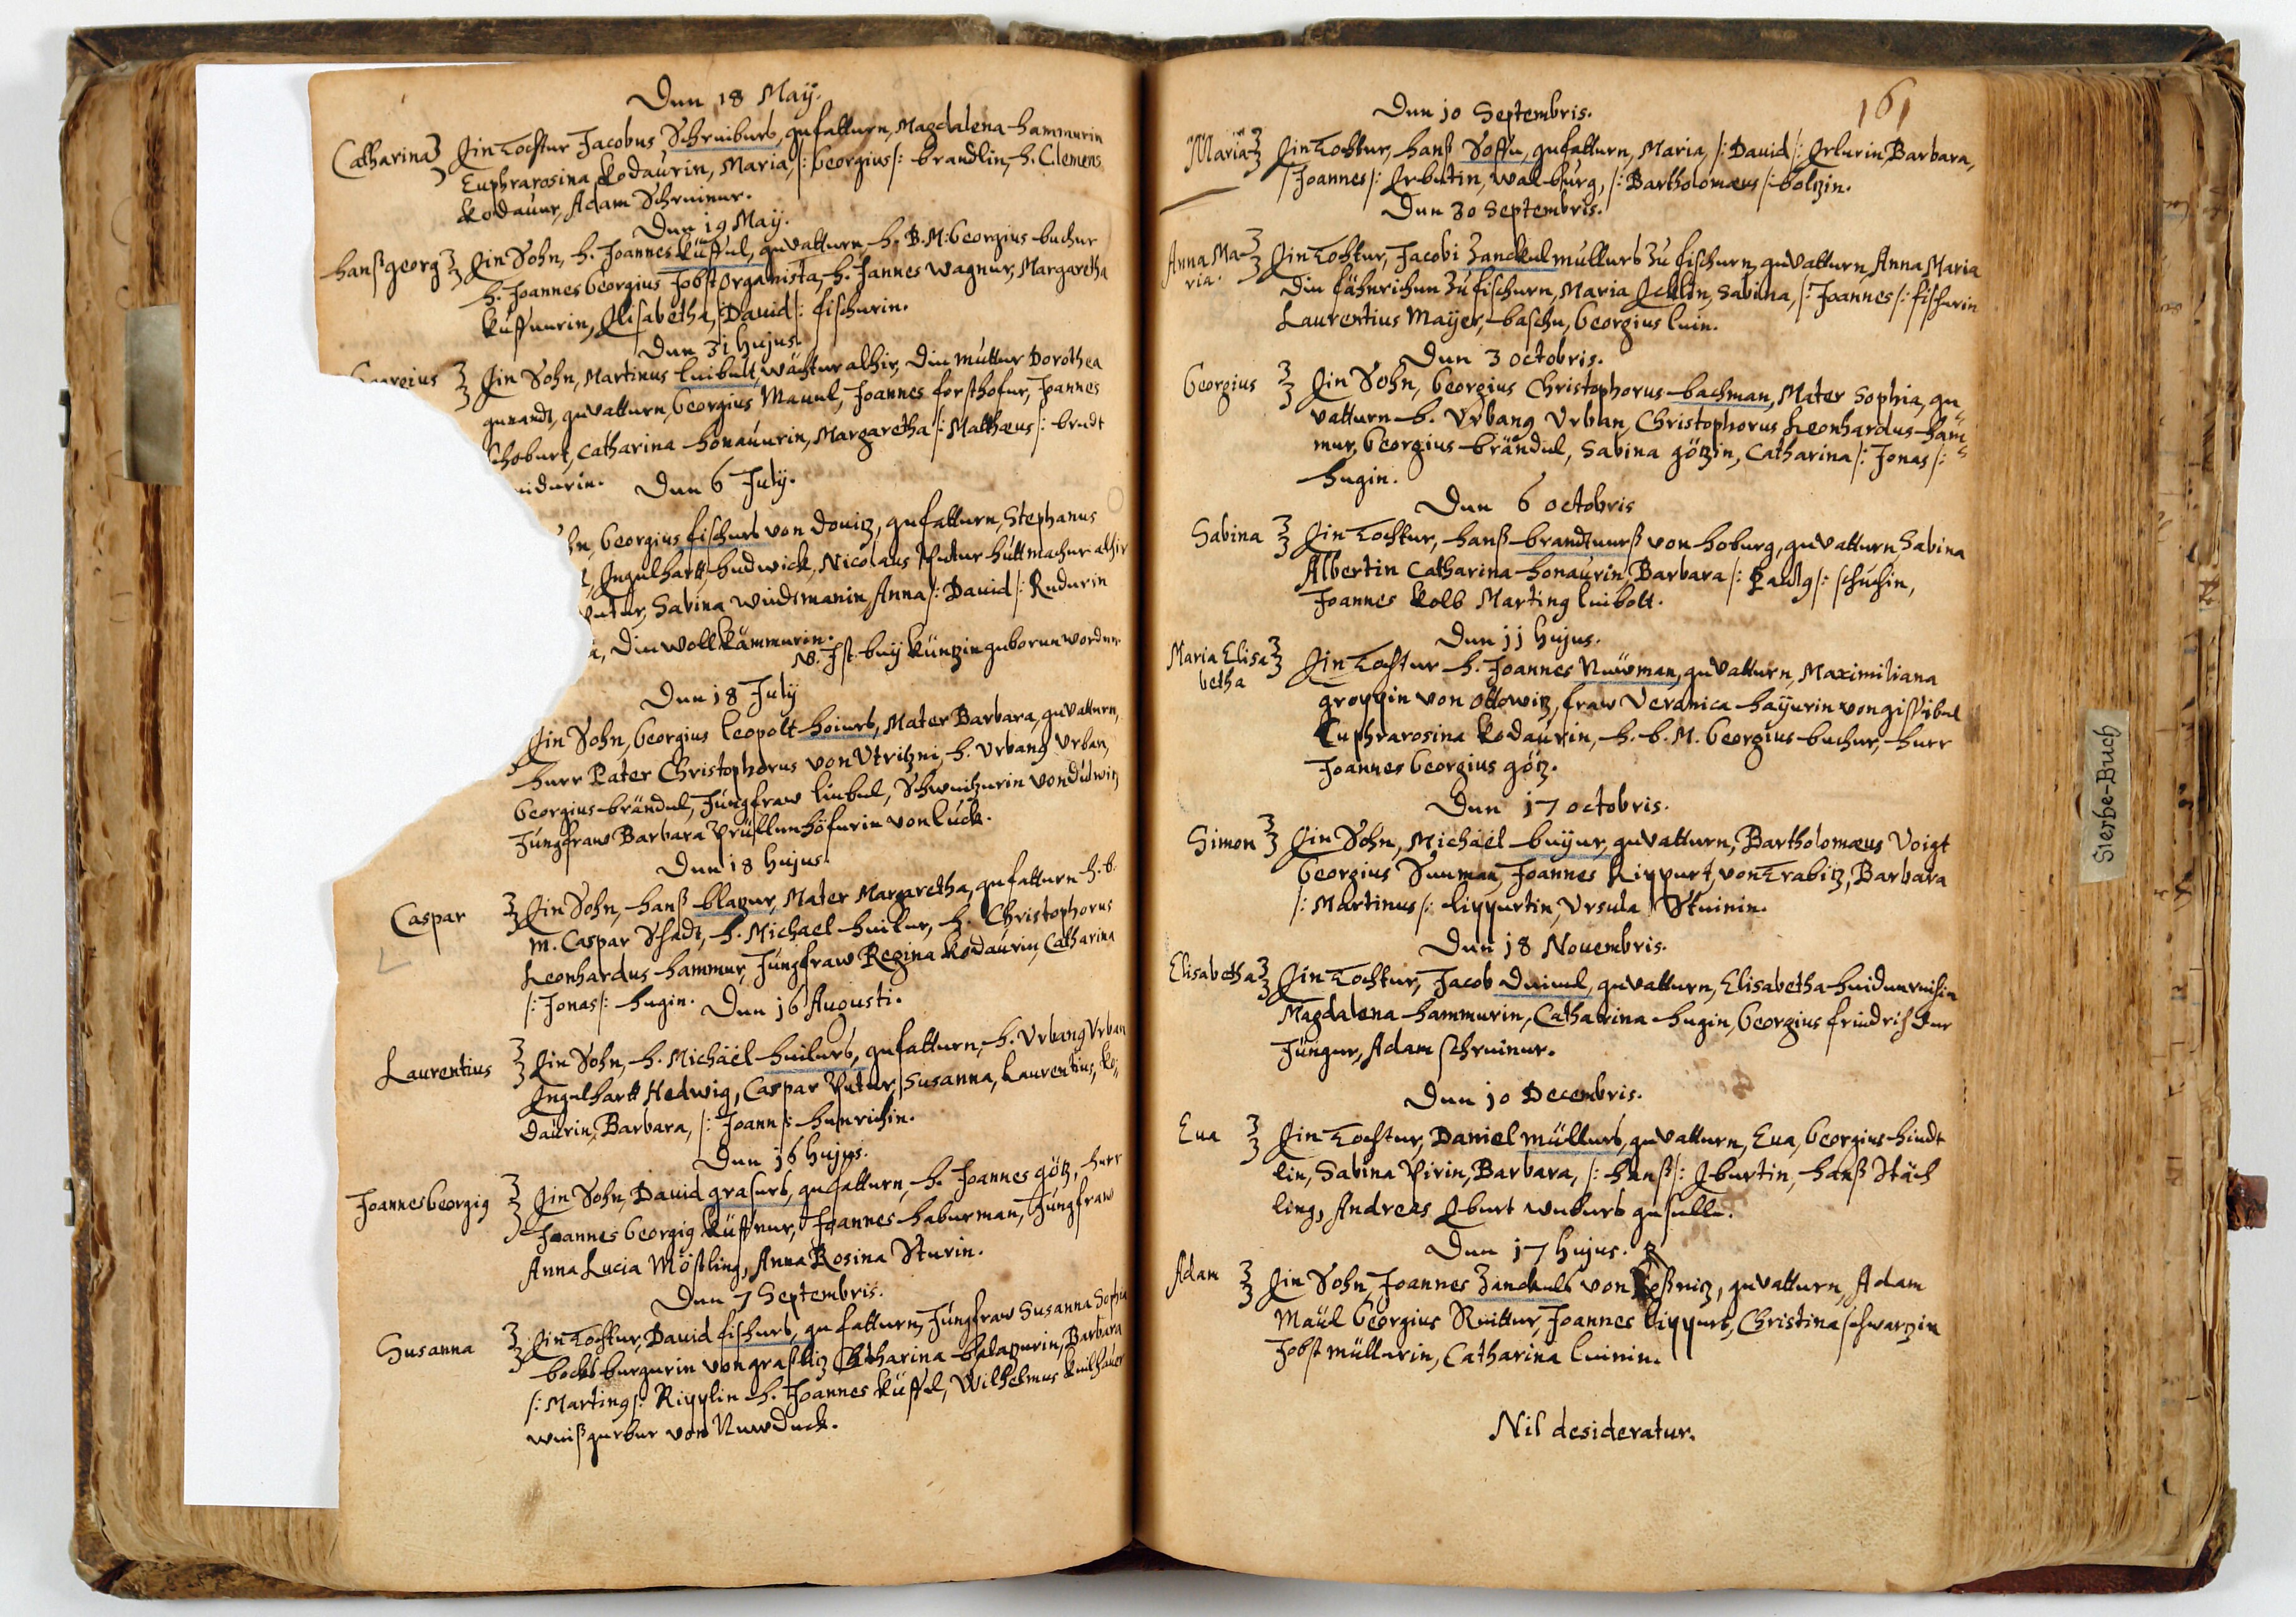 Den 18 Maÿ.
Catharina Ein Tochter Jacobus Schreibers, gefattern, Magdalena hammerin
Euphrarosina Kodauerin, Maria, /: Georgius :/ brandlin, h. Clemens
Kodauer, Adam Schreiner.
Den 19 Maÿ.
hanßgeorg Ein Sohn, h. Joannes Küffel, gevattern, h. B. M: Georgius becher
h. Joannes Georgius Jobst Organista, h. Jannes Wagner, Margaretha
Küffnerin, Elisabetha, /: David /: fischerin.
Den 31 Hujus.
Georgius Ein Sohn, Martinus leibelt, wächter alhir, die mutter Dorothea
genandt, gevattern, Georgius Meuel, Joannes forsthofer, Joannes
Schobert, Catharina honauerin, Margaretha /: Matthæus /: bredt
eiderin. Den 6 Julÿ.
hn, Georgius fischers von Doeitz, gefattern, Stephanus
Engelhartt, hedwick, Nicolaus Peter hüttmacher alhir
Peter, Sabina Wiedemanin, Anna /: David /: Rederin
a, Die wollkämmerin.
NB. Ist beÿ Küntzin geboren worden.
Den 18 Julÿ
Ein Sohn, Georgius leopolt hoiers, Mater Barbara, gevattern,
herr Pater Christophorus von Vtritzni, h. Vrbang Vrban,
Georgius brändel, Jungfraw liebel, Schweitzerin von Dülwitz
Jungfraw Barbara Prüllenhöferin von Lück.
Den 18 Hujus.
Caspar Ein Sohn, hanß blazer, Mater Margaretha, gefattern h. b.
M. Caspar Schedt, h. Michael heiler, h. Christophorus
Leonhardus hammer, Jungfraw Regina Kodaurin, Catharina
/: Jonas /: hegin. Den 16 Augusti.
Laurentius Ein Sohn, h. Michäel heilers, gefattern, h. Vrbang Vrban
Engelhartt Hedwig, Caspar Peter, Susanna, Laurentius, Ko„
daurin, Barbara, /: Joann /: henrichin.
Den 16 Hujus.
Joannes Georgig Ein Sohn, David grasers, gefattern, h. Joannes götz, herr
Joannes Georgig Küffner, Joannes haberman, Jungfraw
Anna Lucia Möstling, Anna Rosina Sturin.
Den 7 Septembris.
Susanna Ein Tochter, David fischers, gefattern, Jungfraw Susanna Sophia
bocksbergerin von graßlitz Catharina balazerin, Barbara
/: Marting /: Ripplin h. Joannes Küffel, Wilhelmus Keilhauer
weißgerber von Newdeck.
161
Den 10 Septembris.
Maria Ein Tochter, hanß Soffe, gefattern, Maria, /: David /: Erlerin, Barbara,
/: Joannes /: Erbetin, Walburg, /: Bartholomæus /: boltzin.
Den 30 Septembris.
Anna Ma- Ein Tochter, Jacobi Zanckelmüllers Zu fischern, gevattern Anna Maria
ria. Die fähnrichen Zu fischern, Maria Ecklin, Sabina, /: Joannes /: fischerin
Laurentius Maÿer, basche, Georgius lein.
Den 3 octobris.
Georgius Ein Sohn, Georgius Christophorus bachman, Mater Sophia, ge
vattern h. Vrbang Vrban, Christophorus Leonhardus ham„
mer, Georgius brändel, Sabina götzin, Catharina /: Jonas /:
hegin.
Den 6 octobris
Sabina Ein Tochter, hanß brandtnerß von hoburg, gevattern Sabina
Albertin Catharina honaurin, Barbara /: Paulg /: schuchin,
Joannes Kolb Marting leibolt.
Den 11 Hujus.
Maria Elisa Ein Tochter h. Joannes Newman, gevattern, Maximiliana
betha groppin von ottowitz, fraw Veronica haÿerin von gissibel
Euphrarosina Kodaurin, h. b. M. Georgius becher, herr
Joannes Georgius götz.
Den 17 octobris.
Simon Ein Sohn, Michäel beÿer, gevattern, Bartholomæus Voigt
Georgius Neuman, Joannes Rippert, von Trabitz, Barbara
/: Martinus /: lippertin, Vrsula Steinin.
Den 18 Nouembris.
Elisabetha Ein Tochter, Jacob Deimel, gevattern, Elisabetha heidenreichin
Magdalena hammerin, Catharina hegin, Georgius friedrich der
Jünger, Adam schreiner.
Den 10 Decembris.
Eua Ein Tochter, Daniel müllers, gevattern, Eua, Georgius hindt
lin, Sabina Pirin, Barbara, /: hanß /: Ebertin, hanß Stäch
ling, Andreas Ebert webers geselle.
Den 17 Hujus.
Adam Ein Sohn, Joannes Zanckels von Roßnitz, gevattern, Adam
Maüel Georgius Reitter, Joannes lippert, Christina schwartzin
Jobst müllerin, Catharina leinin.
Nil desideratur.
Sterbe-Buch